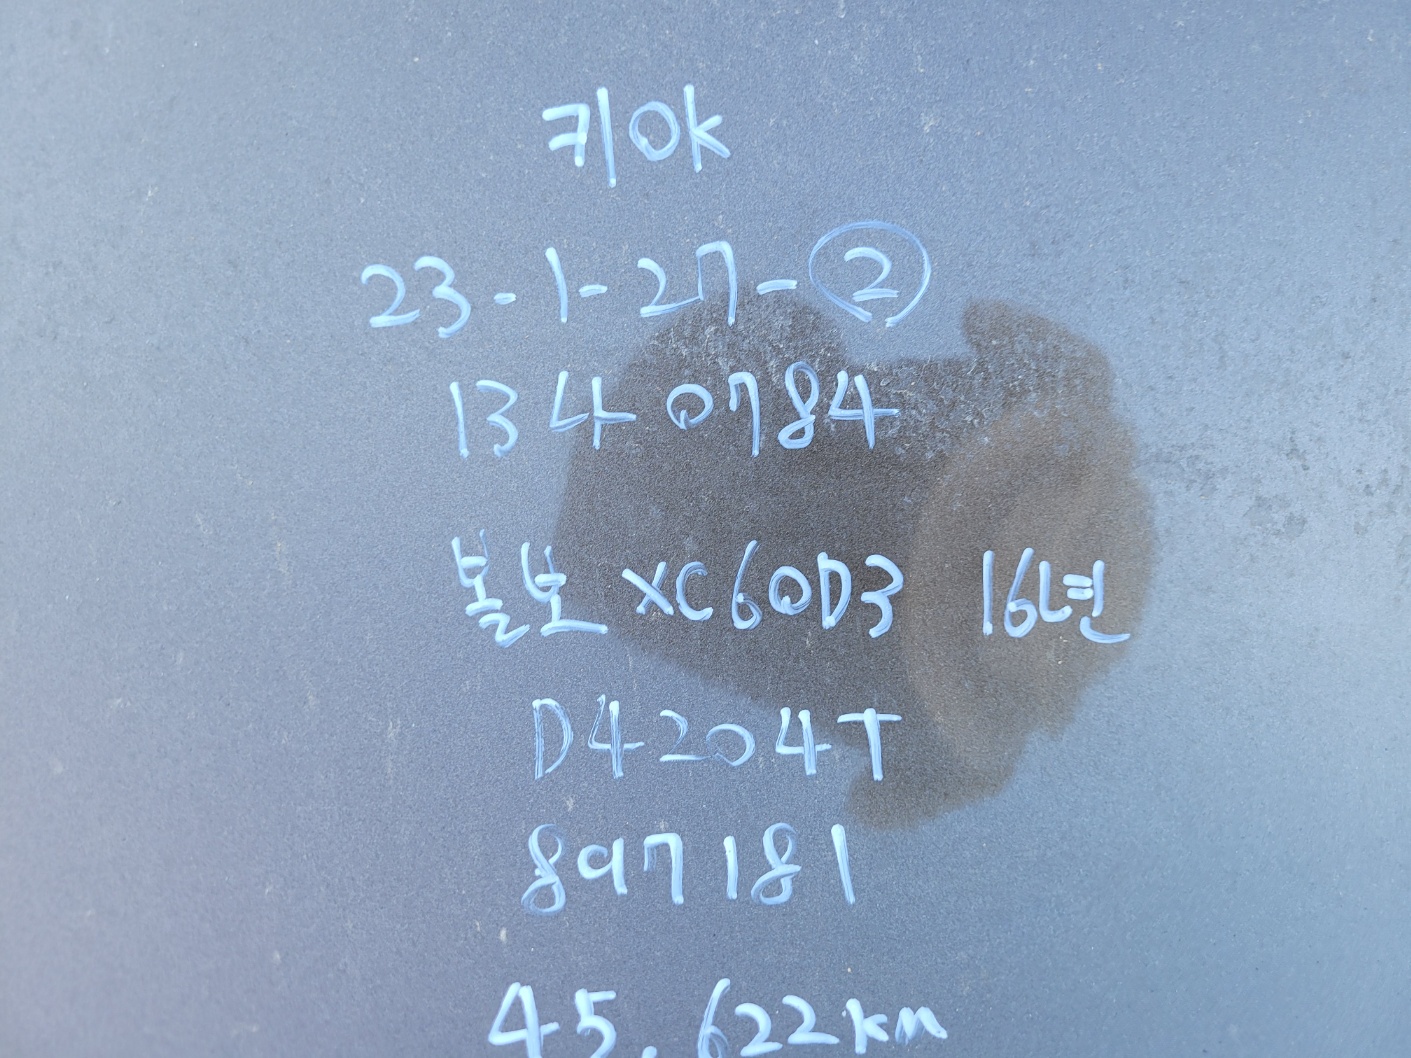 키OK
23-1-27-②
134 0784
볼보 XC60D3 16년
D4204T
897181
45.622km